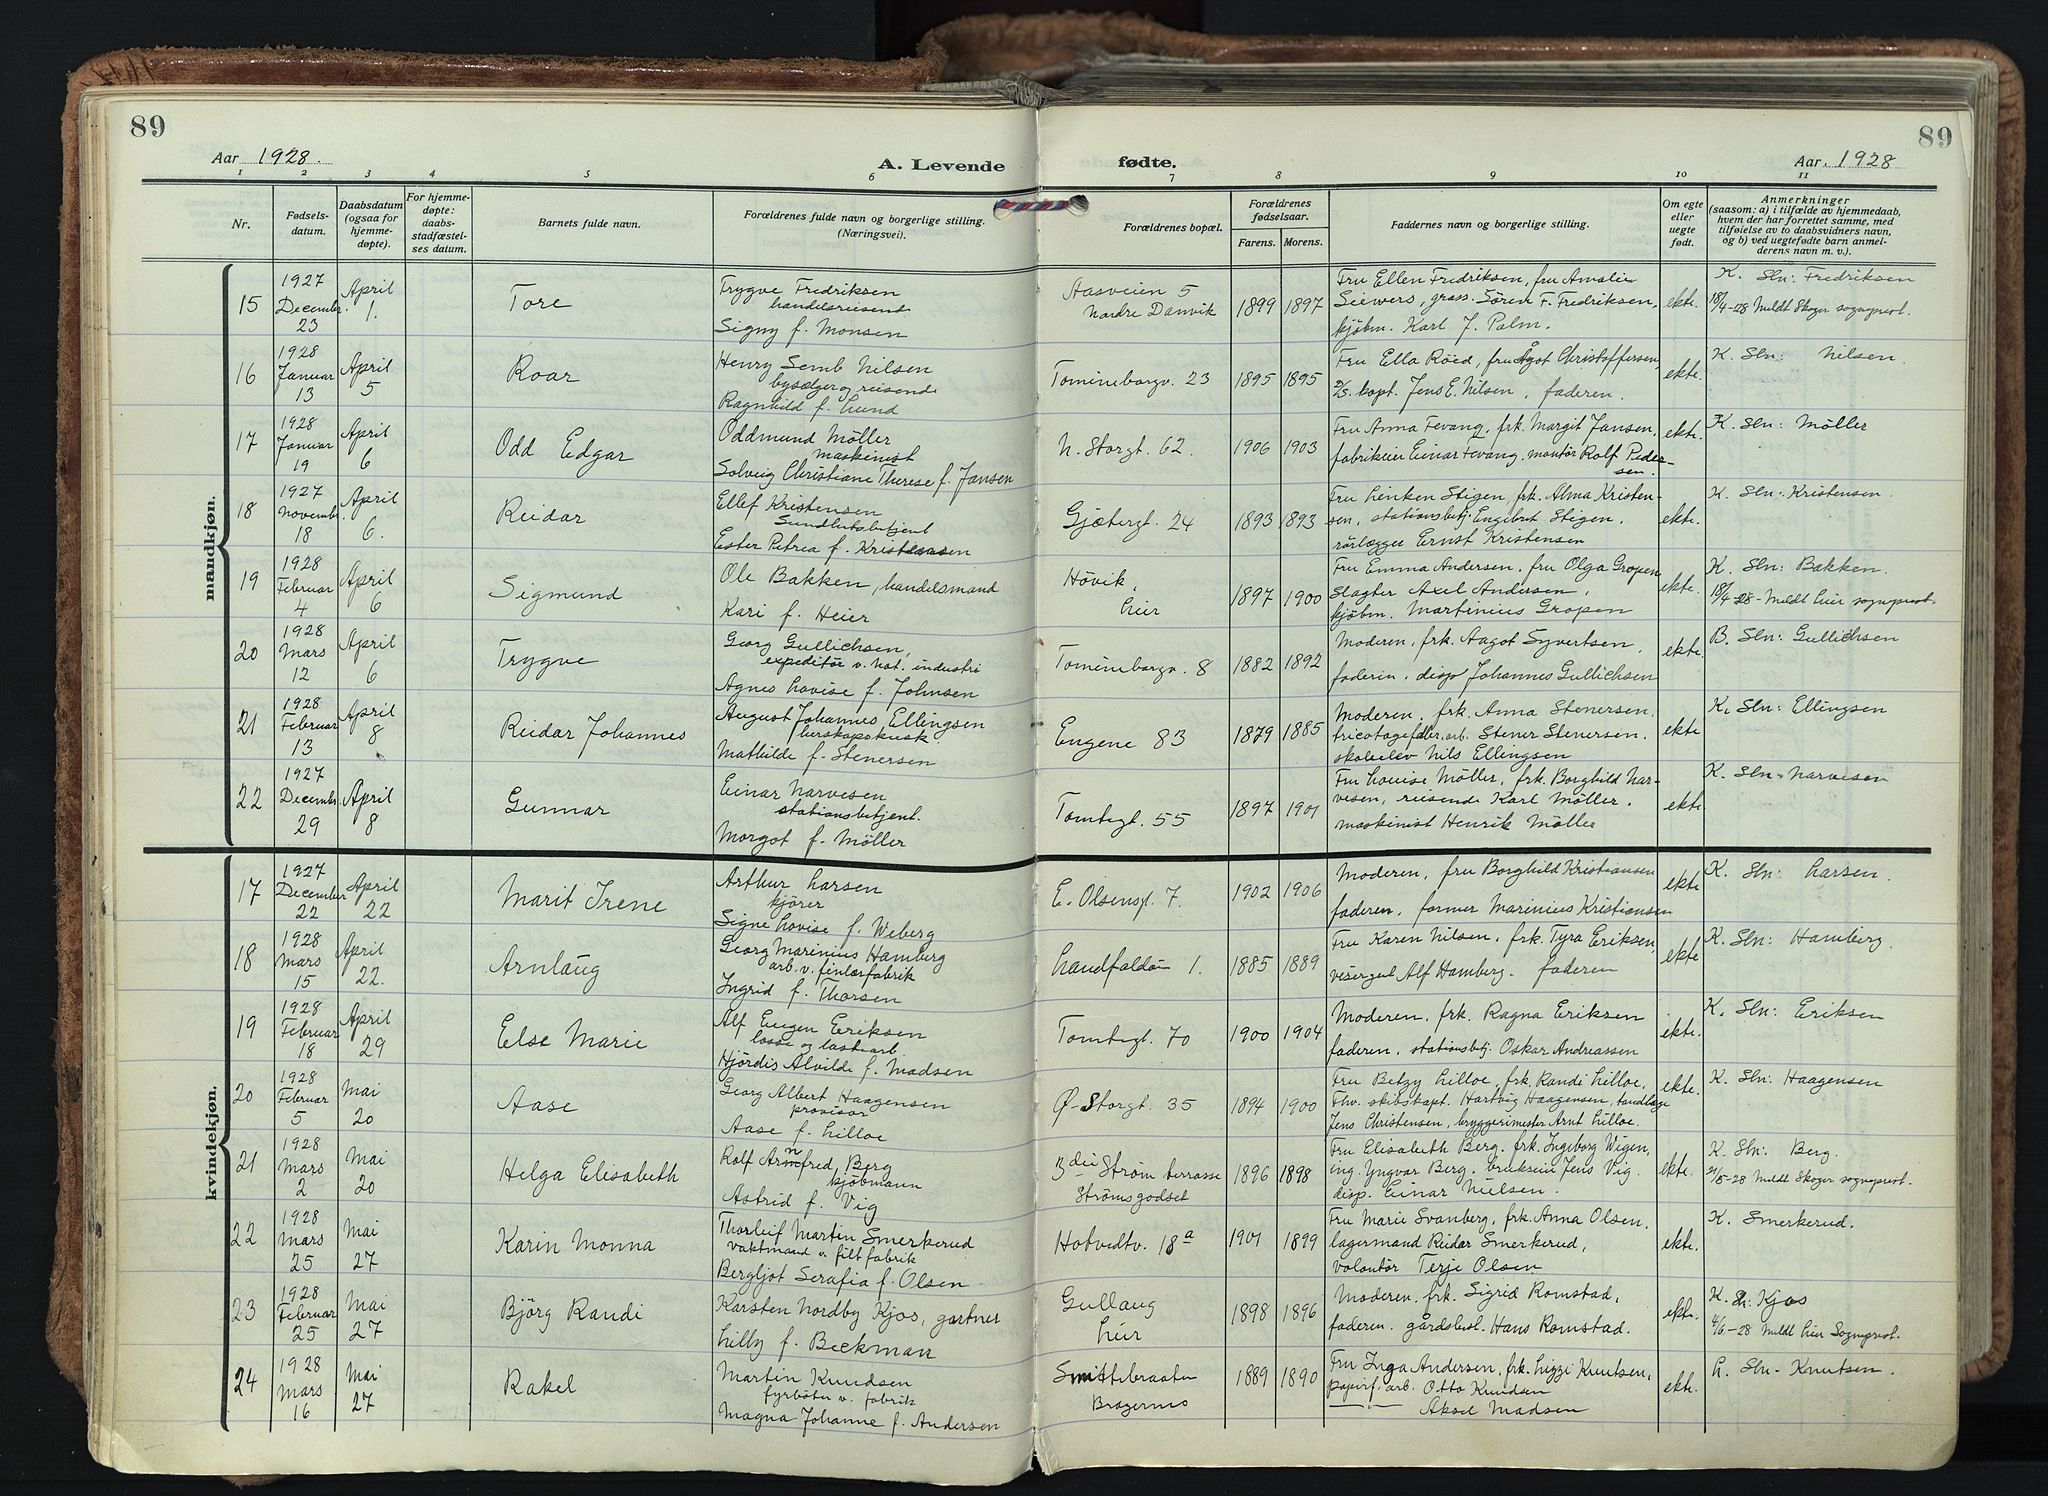 89
89
Aar 1928.
A. Levende
fødte.
Aar. 1928
1 2 3 4 5 6 7 8 9 10 11
Nr.
Fødsels-
datum.
Daabsdatum
(ogsaa for
hjemme-
døpte).
For hjemme-
døpte:
daabs-
stadfæstel-
ses datum.
Barnets fulde navn.
Forældrenes fulde navn og borgerlige stilling.
(Næringsvei).
Forældrenes bopæl.
Forældrenes
fødselsaar.
Farens. Morens.
Faddernes navn og borgerlige stilling.
Om egte
eller
uegte
født.
Anmerkninger
(saasom: a) i tilfælde av hjemmedaab,
hvem der har forrettet samme, med
tilføielse av to daabsvidners navn,
og b) ved uegtefødte barn anmel-
derens navn m. v.).
mandkjøn.
15
1927
December
23
April
1.
Tore
Trygve Fredriksen
handelsreisende
Signy f. Monsen
Aasveien 5
Nordre Danvik
1899 1897
Fru Ellen Fredriksen, fru Amalie
Siewers, gross. Sören F. Fredriksen,
kjöbm. Karl J. Palm.
ekte.
K. Sln: Fredriksen
18/4-28 Meldt Skoger sogneprest.
16
1928
Januar
13
April
5
Roar
Henry Semb Nilsen
bysælger og reisende
Ragnhild f. Lund
Tomineborgv. 23
1895 1895
Fru Ella Röed, fru Agot Christoffersen,
D/S. kapt. Jens E. Nilsen, faderen.
ekte.
K. Sln: Nilsen.
17
1928
Januar
19
April
6
Odd Edgar
Oddmund Möller
maskinist
Solveig Christiane Therese f. Jansen
N. Storgt. 62.
1906 1903
Fru Anna Fevang, frk. Margit Jansen,
fabrikeier Einar Fevang, montör Rolf Peder-
sen.
ekte.
K. Sln: Möller
18
1927
November
18
April
6.
Reidar
Ellef Kristensen
Sundhetsbetjent
Ester Petrea f. Kristensen
Gjætergt. 24
1893 1893
Fru Linken Stigen, frk. Alma Kristen-
sen, stationsbetj. Engebret Stigen,
rörlægger Ernst Kristensen
ekte.
K. Sln: Kristensen.
19
1928
Februar
4
April
6
Sigmund
Ole Bakken, handelsmand
Kari f. Heier
Hövik,
Lier
1897 1900
Fru Emma Andersen, fru Olga Gropen
Slagter Axel Andersen,
kjöbm. Martinius Gropen
ekte.
K. Sln: Bakken.
18/4-28- Meldt Lier sogneprest.
20
1928
Mars
12
April
6
Trygve
Georg Gullichsen,
expeditör v. Nat. industri
Agnes Lovise f. Johnsen
Tomineborgv. 8
1882 1892
Moderen, frk. Aagot Syvertsen,
faderen, disp. Johannes Gullichsen
ekte.
B. Sln: Gullichsen
21
1928
Februar
13
April
8
Reidar Johannes
August Johannes Ellingsen
herskapskusk.
Mathilde f. Stenersen
Engene 83
1879 1885
Moderen, frk. Anna Stenersen,
tricotagefabr. arb. Stener Stenersen,
skoleelev Nils Ellingsen
ekte
K. Sln: Ellingsen
22
1927
December
29
April
8
Gunnar
Einar Narvesen
stationsbetjent.
Margot f. Möller
Tomtegt. 55
1897 1901
Fru Louise Möller, frk. Borghild Nar-
vesen, reisende Karl Möller,
maskinist Henrik Möller
ekte
K. Sln: Narvesen
kvindekjøn.
17
1927
December
22
April
22
Marit Irene
Arthur Larsen
kjörer
Signe Lovise f. Weberg
E. Olsensgt. 7.
1902 1906
Moderen, fru Borghild Kristiansen
faderen, former Marinius Kristiansen
ekte
K. Sln: Larsen.
18
1928
Mars
15
April
22.
Arnlaug
Georg Marinius Hamberg
arb. v. finlærfabrik
Ingrid f. Thorsen
Landfaldöen 1.
1885 1889
Fru Karen Nilsen, frk. Tyra Eriksen,
visergut Alf Hamberg. faderen
ekte
K. Sln: Hamberg.
19
1928
Februar
18
April
29
Else Marie
Alf Eugen Eriksen
losse og lastearb.
Hjördis Alvilde f. Madsen
Tomtegt. 70
1900 1904
Moderen, frk. Ragna Eriksen
faderen, stationsbetj. Oskar Andreassen
ekte.
K. Sln: Eriksen
20
1928
Februar
5
Mai
20
Aase
Georg Albert Haagensen
provisor
Aase f. Lilloe
Ø-Storgt. 35
1894 1900
Fru Betzy Lilloe, frk. Randi Lilloe,
Fhv. skibskapt. Hartvig Haagensen, tandlæge
Jens Christensen, bryggerimester Arnt Lilloe.
ekte.
K. Sln: Haagensen
21
1928
Mars
2
Mai
20
Helga Elisabeth
Rolf Arnfred Berg
kjöbmann
Astrid f. Vig
3die Ström terrasse
Strömsgodset
1896 1898
Fru Elisabeth Berg, frk. Ingeborg Wigen,
ing. Yngvar Berg, brukseier Jens Vig.
disp. Einar Nielsen.
ekte.
K. Sln: Berg.
21/5-28 Meldt Skoger sogneprest.
22
1928
Mars
25
Mai
27
Karin Monna
Thorleif Martin Smerkerud
vaktmand v. filtfabrik
Bergljot Serafia f. Olsen
Hotvedtv. 18a
1901 1899
Fru Marie Svanberg, frk. Anna Olsen,
lagermand Reidar Smerkerud,
Volontör Terje Olsen
ekte.
K. Smerkerud.
23
1928
Februar
25
Mai
27
Björg Randi
Karsten Nordby Kjos, gartner
Lilly f. Beckman
Gullaug
Lier
1898 1896
Moderen, frk. Sigrid Romstad,
faderen, gårdsbest. Hans Romstad.
ekte.
K. Sln: Kjos
4/6-28 Meldt Lier Sogneprest.
24
1928
Mars
16
Mai
27
Rakel
Martin Knudsen
fyrböter v. fabrik
Magna Johanne f. Andersen
Smittebraaten
Bragernes
1889 1890
Fru Inga Andersen, frk. Lizzi Knutsen,
papirf. arb. Otto Knudsen
Aksel Madsen
ekte.
L. Sln- Knutsen.